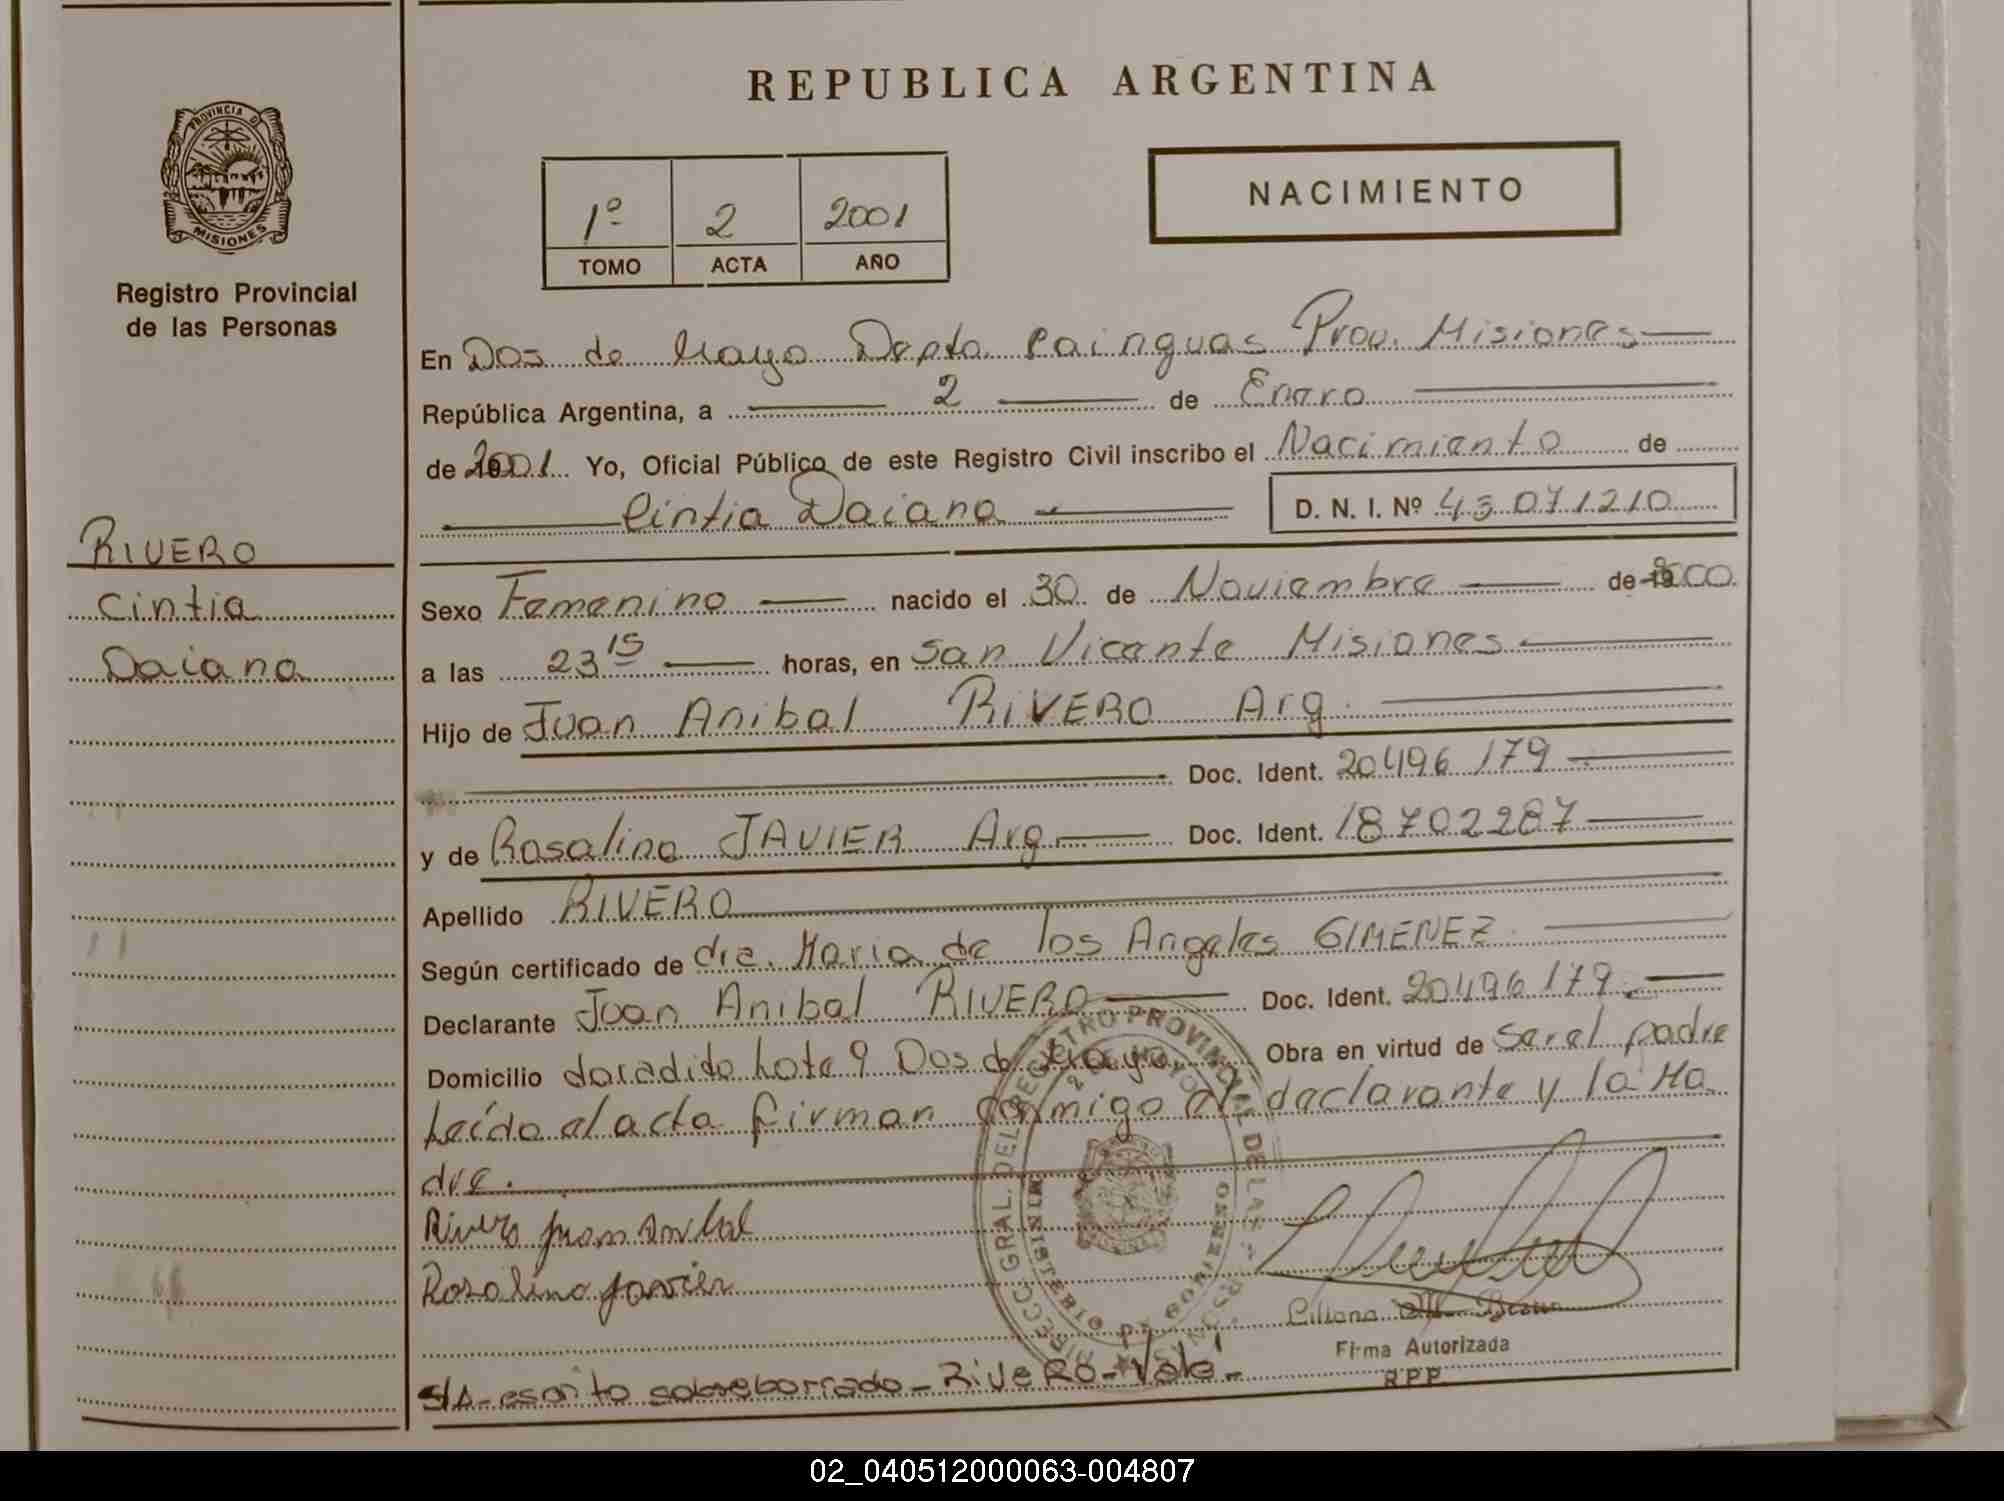 REPUBLICA ARGENTINA
PROVINCIA D
MISIONES
Registro Provincial
de las Personas
1º 2 2001
TOMO ACTA AÑO
NACIMIENTO
En Dos de Mayo Depto. Cainguas Prov. Misiones
República Argentina, a 2 de Enero
de 2001 Yo, Oficial Público de este Registro Civil inscribo el Nacimiento de
Cintia Daiana D. N. I. Nº 43.071.210
RIVERO
Cintia
Daiana
Sexo Femenino nacido el 30 de Noviembre de 2000
a las 23 15 horas, en San Vicente Misiones
Hijo de Juan Anibal RIVERO Arg.
Doc. Ident. 20496179
y de Rosalina JAVIER Arg. Doc. Ident. 18702287
Apellido RIVERO
Según certificado de dra. Maria de los Angeles GIMENEZ
Declarante Juan Anibal RIVERO Doc. Ident. 20496179
Domicilio doradito Lote 9 Dos de Mayo Obra en virtud de ser el padre
Leído el acta firman conmigo el declarante y la Ma
dre.
Rivero Juan Anibal
Rosalina Javier
REGISTRO PROVINCIAL DE LAS
MINISTERIO DE GOBIERNO
Liliana
Firma Autorizada
RPP
S/A - escrito sobreborrado - RIVERO - Vale -
02_040512000063-004807